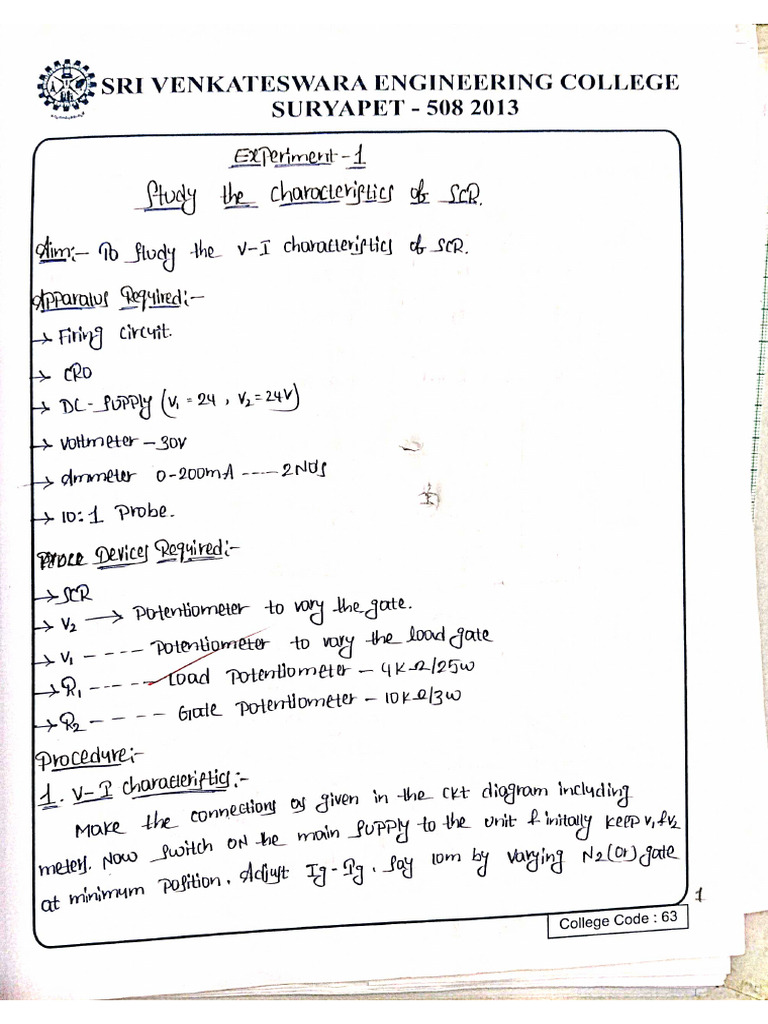 SRI VENKATESWARA ENGINEERING COLLEGE
SURYAPET - 508 2013
Experiment-1
Study the characteristics of SCR.
Aim:- To study the V-I characteristics of SCR.
Apparatus Required:-
→ Firing circuit.
→ CRO
→ DC-Supply (V1 = 24, V2 = 24V)
→ voltmeter - 30V
→ Ammeter 0-200mA ----- 2Nos
→ 10:1 Probe.
Devices Required:-
→ SCR
→ V2 → Potentiometer to vary the gate.
→ V1 ---- Potentiometer to vary the load gate
→ R1 ----- Load Potentiometer - 4KΩ/25W
→ R2 ---- Gate Potentiometer - 10KΩ/3W
Procedure:-
1. V-I characteristics:-
Make the connections as given in the ckt diagram including
meters. Now switch ON the main supply to the unit & initally keep V1 & V2
at minimum position. Adjust Ig-Ig. say 10m by varying N2 (or) gate
1
College Code : 63